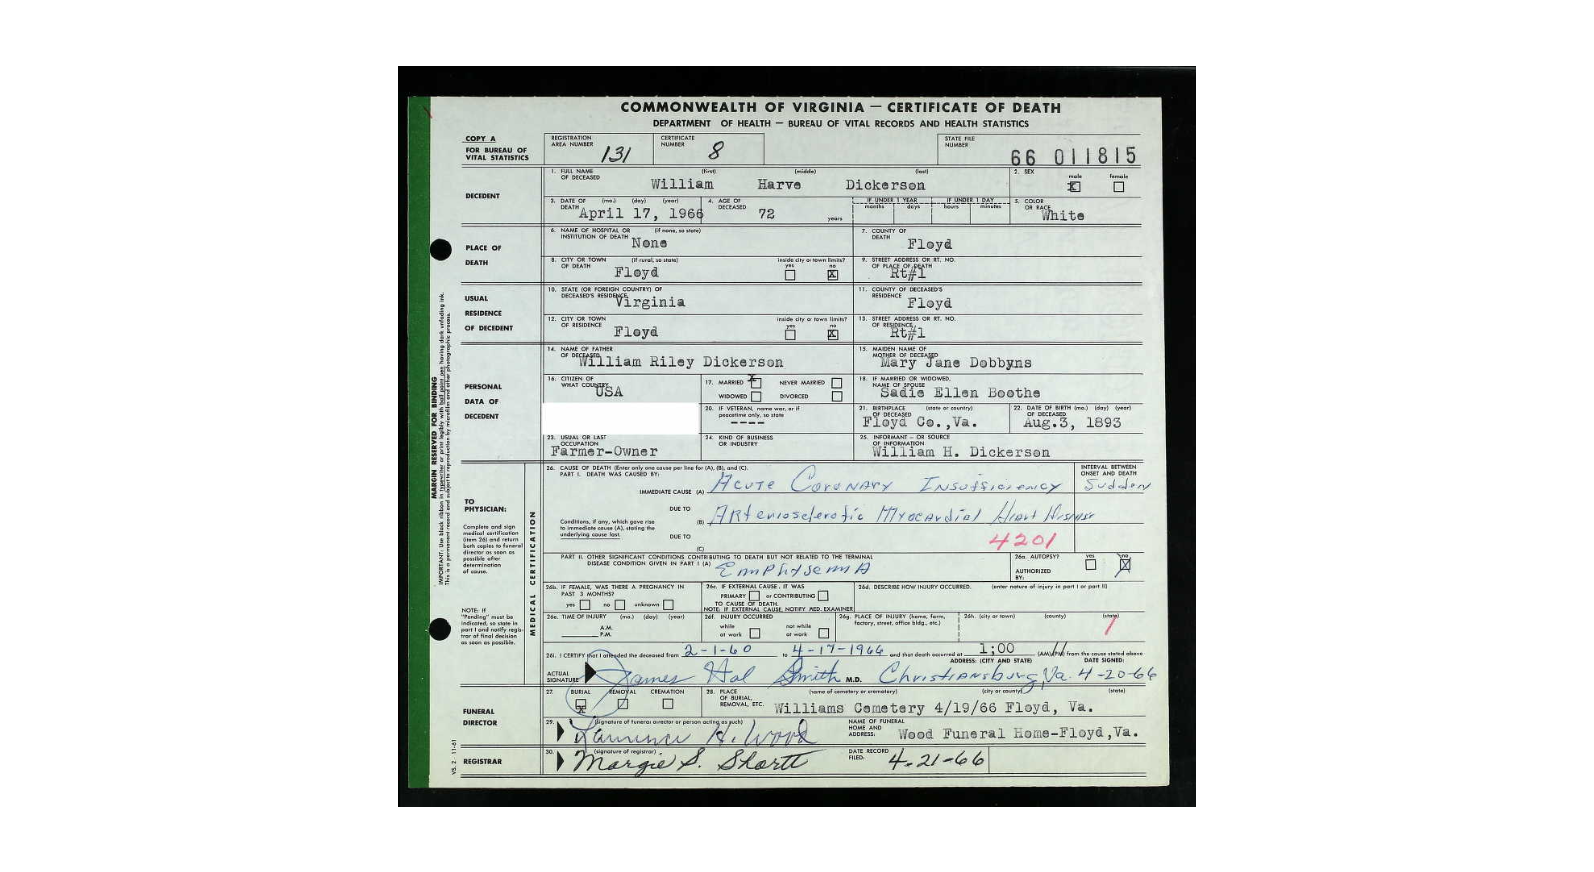 COMMONWEALTH OF VIRGINIA — CERTIFICATE OF DEATH
DEPARTMENT OF HEALTH — BUREAU OF VITAL RECORDS AND HEALTH STATISTICS
COPY A
FOR BUREAU OF VITAL STATISTICS
REGISTRATION AREA NUMBER 131
CERTIFICATE NUMBER 8
STATE FILE NUMBER 66 011815
DECEDENT
1. FULL NAME OF DECEASED (first) (middle) (last)
William Harve Dickerson
2. SEX male X female
3. DATE OF DEATH (mo.) (day) (year) April 17, 1966
4. AGE OF DECEASED 72 years
IF UNDER 1 YEAR months days IF UNDER 1 DAY hours minutes
5. COLOR OR RACE White
PLACE OF DEATH
6. NAME OF HOSPITAL OR INSTITUTION OF DEATH (if none, so state) None
7. COUNTY OF DEATH Floyd
8. CITY OR TOWN OF DEATH (if rural, so state) Floyd
inside city or town limits? yes no X
9. STREET ADDRESS OR RT. NO. OF PLACE OF DEATH Rt#1
USUAL RESIDENCE OF DECEDENT
10. STATE (OR FOREIGN COUNTRY) OF DECEASED'S RESIDENCE Virginia
11. COUNTY OF DECEASED'S RESIDENCE Floyd
12. CITY OR TOWN OF RESIDENCE Floyd
inside city or town limits? yes no X
13. STREET ADDRESS OR RT. NO. OF RESIDENCE Rt#1
PERSONAL DATA OF DECEDENT
14. NAME OF FATHER OF DECEASED William Riley Dickerson
15. MAIDEN NAME OF MOTHER OF DECEASED Mary Jane Dobbyns
16. CITIZEN OF WHAT COUNTRY USA
17. MARRIED X NEVER MARRIED WIDOWED DIVORCED
18. IF MARRIED OR WIDOWED, NAME OF SPOUSE Sadie Ellen Boothe
20. IF VETERAN, name war, or if peacetime only, so state ----
21. BIRTHPLACE OF DECEASED (state or country) Floyd Co.,Va.
22. DATE OF BIRTH OF DECEASED (mo.) (day) (year) Aug.3, 1893
23. USUAL OR LAST OCCUPATION Farmer-Owner
24. KIND OF BUSINESS OR INDUSTRY
25. INFORMANT — OR SOURCE OF INFORMATION William H. Dickerson
TO PHYSICIAN:
Complete and sign medical certification (item 26) and return both copies to funeral director as soon as possible after determination of cause.
NOTE: If "Pending" must be indicated, so state in part I and notify registrar of final decision as soon as possible.
MEDICAL CERTIFICATION
26. CAUSE OF DEATH (Enter only one cause per line for (A), (B), and (C).
PART I. DEATH WAS CAUSED BY:
INTERVAL BETWEEN ONSET AND DEATH
IMMEDIATE CAUSE (A) Acute Coronary Insufficiency Sudden
DUE TO
(B) Arteriosclerotic Myocardial Heart Disease
Conditions, if any, which gave rise to immediate cause (A), stating the underlying cause last.
DUE TO
(C)
4201
PART II. OTHER SIGNIFICANT CONDITIONS CONTRIBUTING TO DEATH BUT NOT RELATED TO THE TERMINAL DISEASE CONDITION GIVEN IN PART I (A) Emphysema
26a. AUTOPSY? yes no X
AUTHORIZED BY:
26b. IF FEMALE, WAS THERE A PREGNANCY IN PAST 3 MONTHS? yes no unknown
26c. IF EXTERNAL CAUSE, IT WAS PRIMARY or CONTRIBUTING TO CAUSE OF DEATH.
NOTE: IF EXTERNAL CAUSE, NOTIFY MED. EXAMINER
26d. DESCRIBE HOW INJURY OCCURRED. (enter nature of injury in part I or part II)
26e. TIME OF INJURY (mo.) (day) (year) A.M. P.M.
26f. INJURY OCCURRED while at work not while at work
26g. PLACE OF INJURY (home, farm, factory, street, office bldg., etc.)
26h. (city or town) (county) (state)
1
26i. I CERTIFY that I attended the deceased from 2-1-60 to 4-17-1966 and that death occurred at 1:00 (AM)(PM) from the cause stated above
ACTUAL SIGNATURE James Hal Smith M.D.
ADDRESS: (CITY AND STATE) Christiansburg, Va.
DATE SIGNED: 4-20-66
FUNERAL DIRECTOR
27. BURIAL X REMOVAL CREMATION
28. PLACE OF BURIAL, REMOVAL, ETC. (name of cemetery or crematory) (city or county) (state)
Williams Cemetery 4/19/66 Floyd, Va.
29. (signature of funeral director or person acting as such)
H. Wood
NAME OF FUNERAL HOME AND ADDRESS: Wood Funeral Home-Floyd,Va.
REGISTRAR
30. (signature of registrar)
Margie S. Shortt
DATE RECORD FILED: 4-21-66
VS. 2 11-61
MARGIN RESERVED FOR BINDING
IMPORTANT: Use black ribbon in typewriter or print legibly with ball point pen having dark unfading ink.
This is a permanent record and subject to reproduction by microfilm and other photographic process.